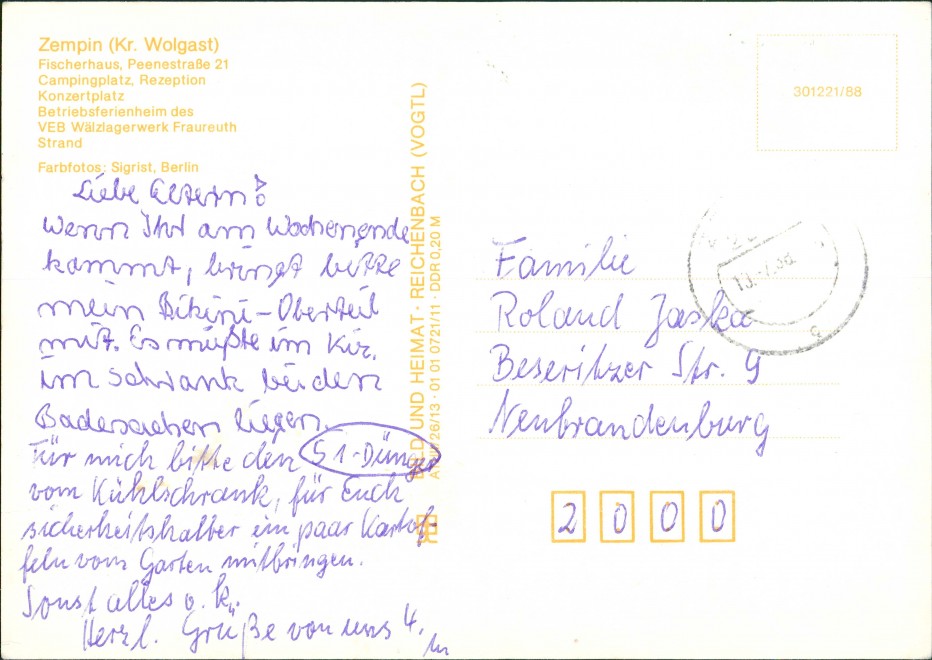 Zempin (Kr. Wolgast)
Fischerhaus, Peenestraße 21
Campingplatz, Rezeption
Konzertplatz
Betriebsferienheim des
VEB Wälzlagerwerk Fraureuth
Strand
Farbfotos: Sigrist, Berlin
Liebe Eltern!
Wenn Ihr am Wochenende
kommt, bringt bitte
mein Bikini-Oberteil
mit. Es müßte im
im Schrank bei den
Badesachen liegen.
Für mich bitte den S1-Dünger
vom Kühlschrank, für Euch
sicherheitshalber ein paar Kartof-
feln vom Garten mitbringen.
Sonst alles o.k.
Herzl. Grüße von uns 4.
UND HEIMAT · REICHENBACH (VOGTL)
01 01 0721/11 · DDR 0,20 M
301221/88
Familie
Roland Jaska
Beseritzer Str. 9
Neubrandenburg
2000